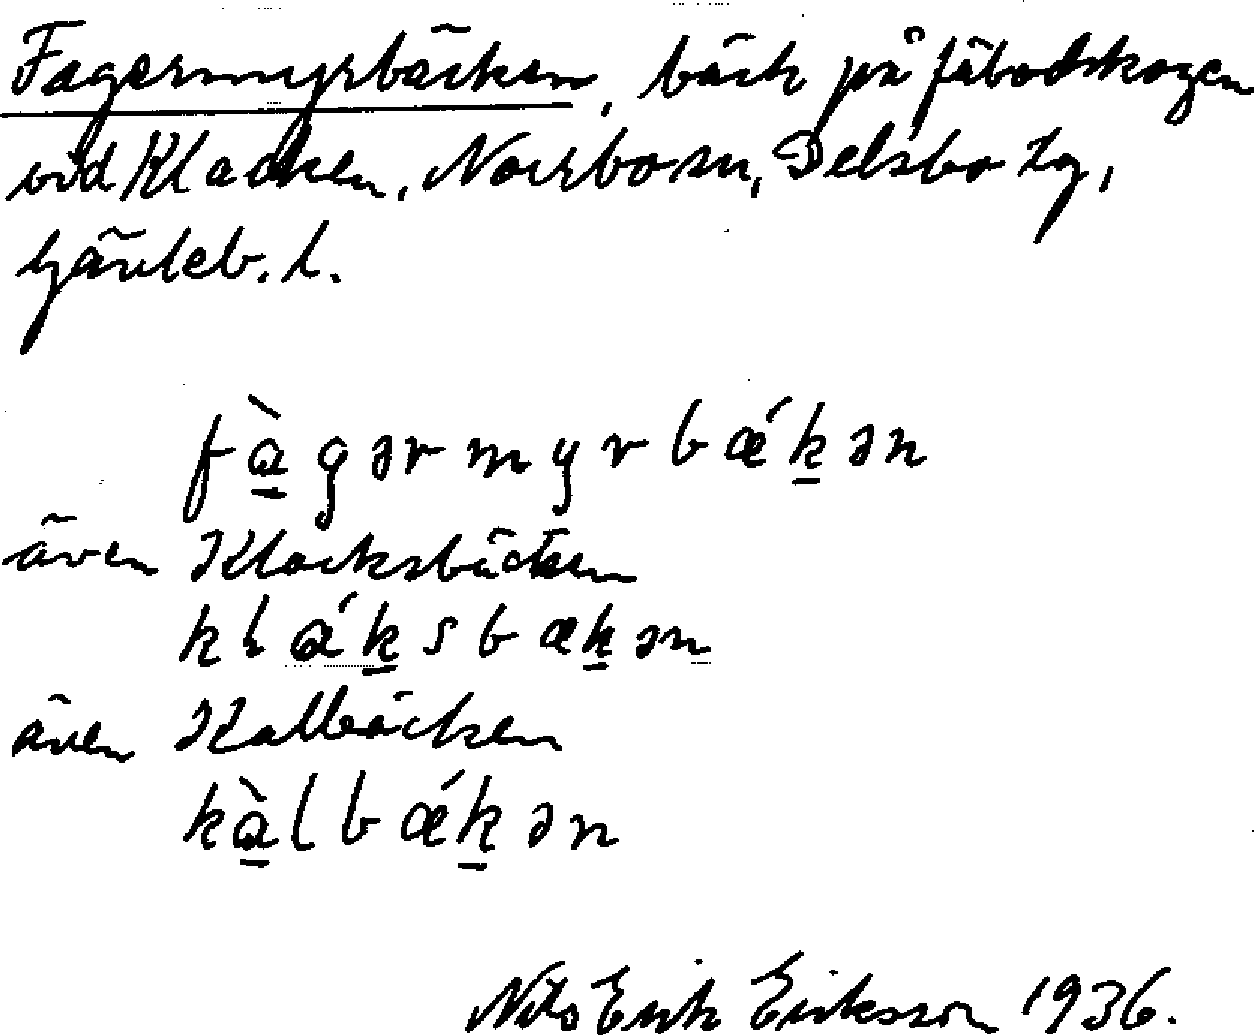 Fagermyrbäcken, bäck på fäbodskogen
vid Klacken, Norrbo sn, Delsbo tg,
Gävleb. l.
fà̱gərmyrbǽḵən
även Klacksbäcken
kláḵsbæḵən
även Kallbäcken
kà̱lbǽḵən
Nils Erik Eriksson 1936.